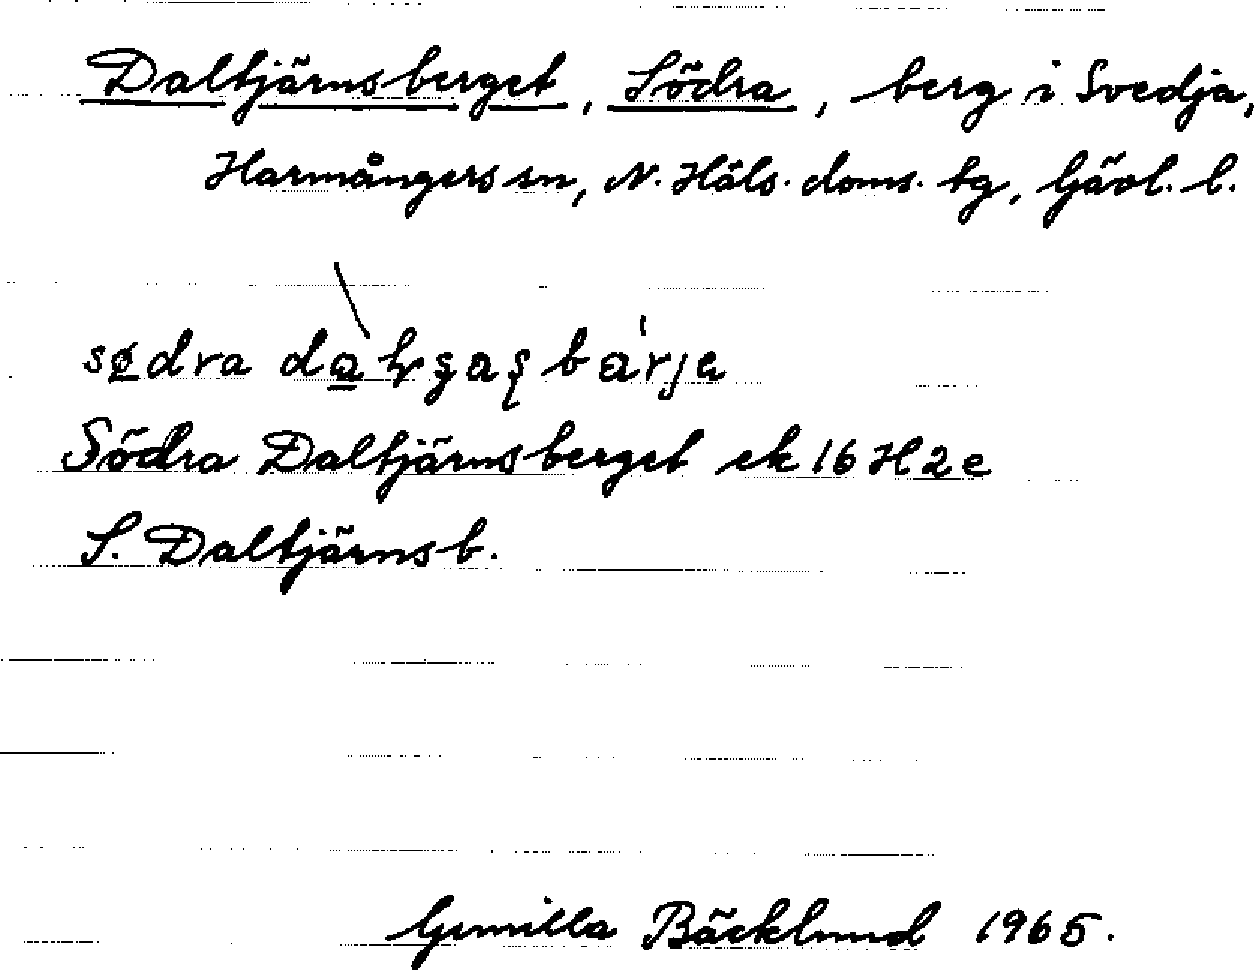 Daltjärnsberget, Södra, berg i Svedja,
Harmångers sn, N. Häls. doms. tg, Gävl. l.
södra
Södra Daltjärnsberget ek 16 H 2 e
S. Daltjärnsb.
Gunilla Bäcklund 1965.